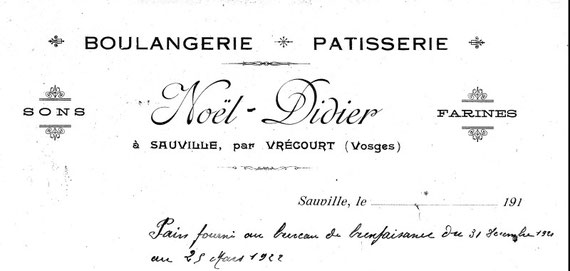 BOULANGERIE PATISSERIE
SONS
Noël-Didier
FARINES
à SAUVILLE, par VRÉCOURT (Vosges)
Sauville, le 191
Pain fourni au bureau de bienfaisance du 31 Décembre 1921
au 25 Mars 1922